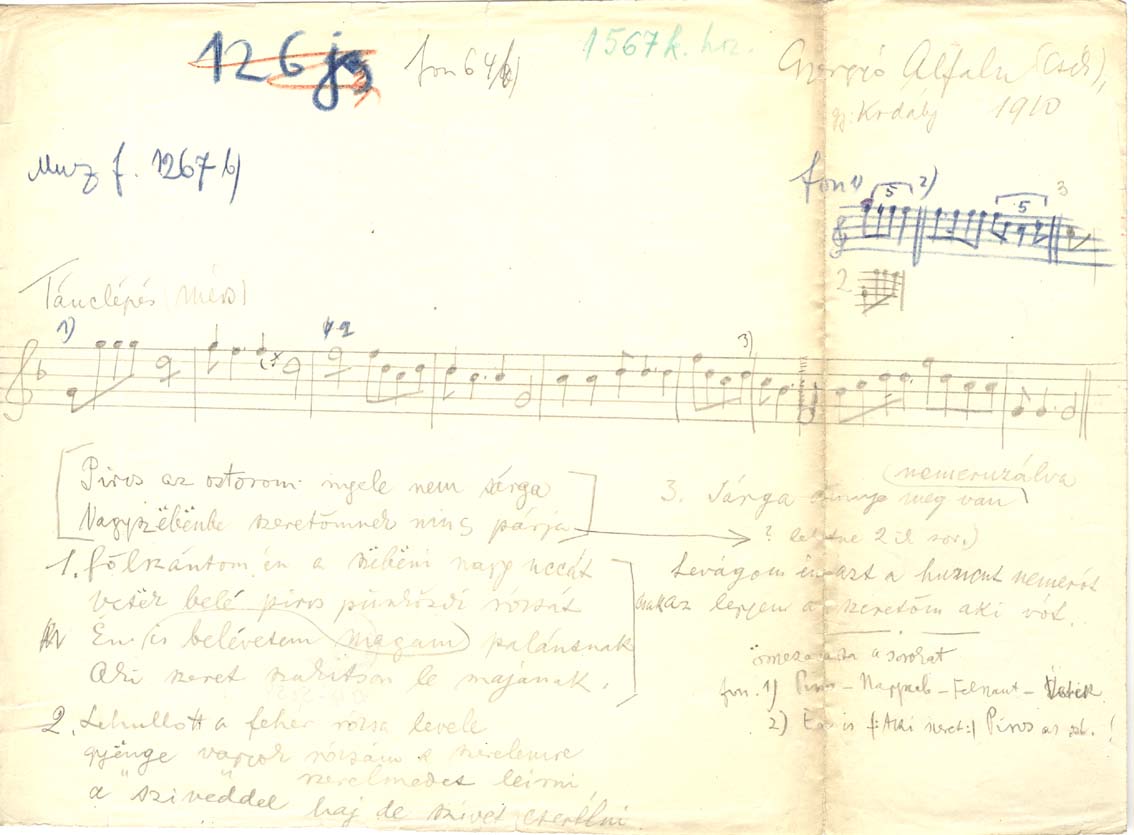 126 js
fon 64/b)
1567 k. hoz.
Gyergyó Alfalu (Csík),
gy: Kodály 1910
Muz f. 1267 b)
fon 1) 5 2) 5 3
2
Tánclépés (mérs)
1) 3)
Piros az ostorom nyele nem sárga
Nagyszëbënbe szeretőmnek nincs párja
1. Fölszántom én a szëbëni nagy uccát
vetëk belé piros pünközsdi rózsát
Én is belévetem magam palántnak
Aki szeret szakitson le májának.
2. Lehullott a fehér rózsa levele
gyënge vagyok rózsám a szerelemre
szerelmedet leirni
a sziveddel haj de szivet cserélni
(nemeruzálva
3. Sárga meg van
? 2 ik sor.)
Levágom én azt a huncut nemeröt
csak az legyen a szeretőm aki vót.
a sorokat
fon. 1) Piros – Nagyszeb – Felszánt – Vetëk
2) Én is |: Aki szeret :| Piros az ost. !